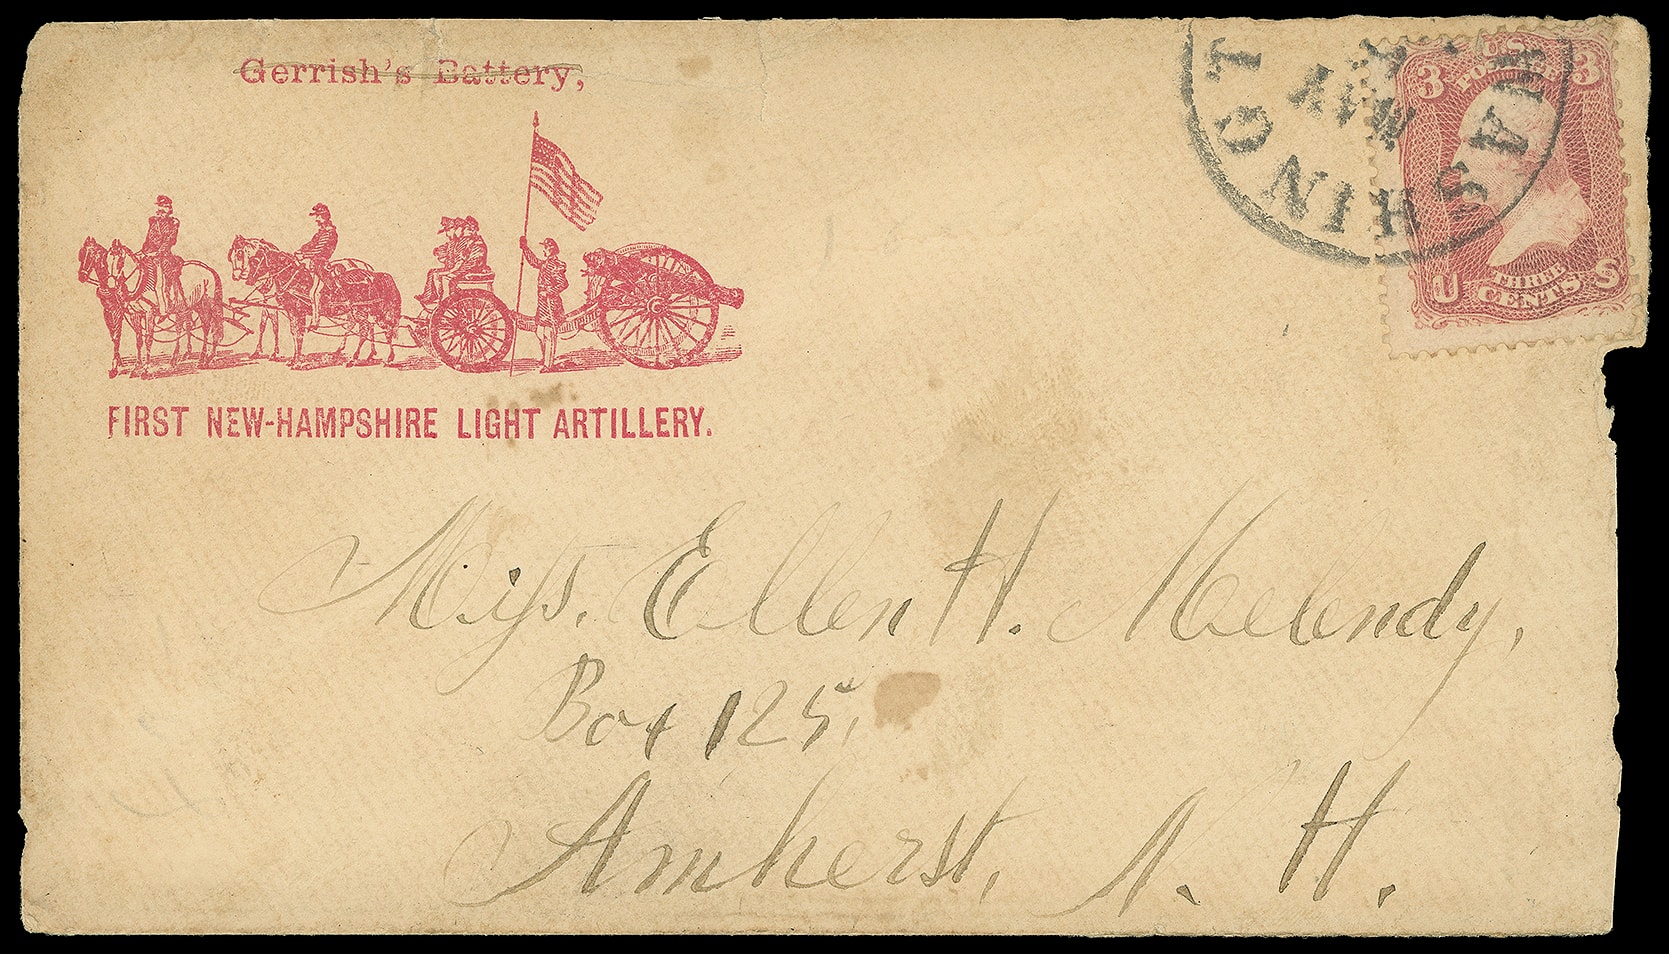 Gerrish's Battery,
FIRST NEW-HAMPSHIRE LIGHT ARTILLERY.
WASHINGT
MAY
3 U S 3
POSTAGE
THREE
U CENTS S
Miss. Ellen H. Melendy,
Box 125,
Amherst, N. H.